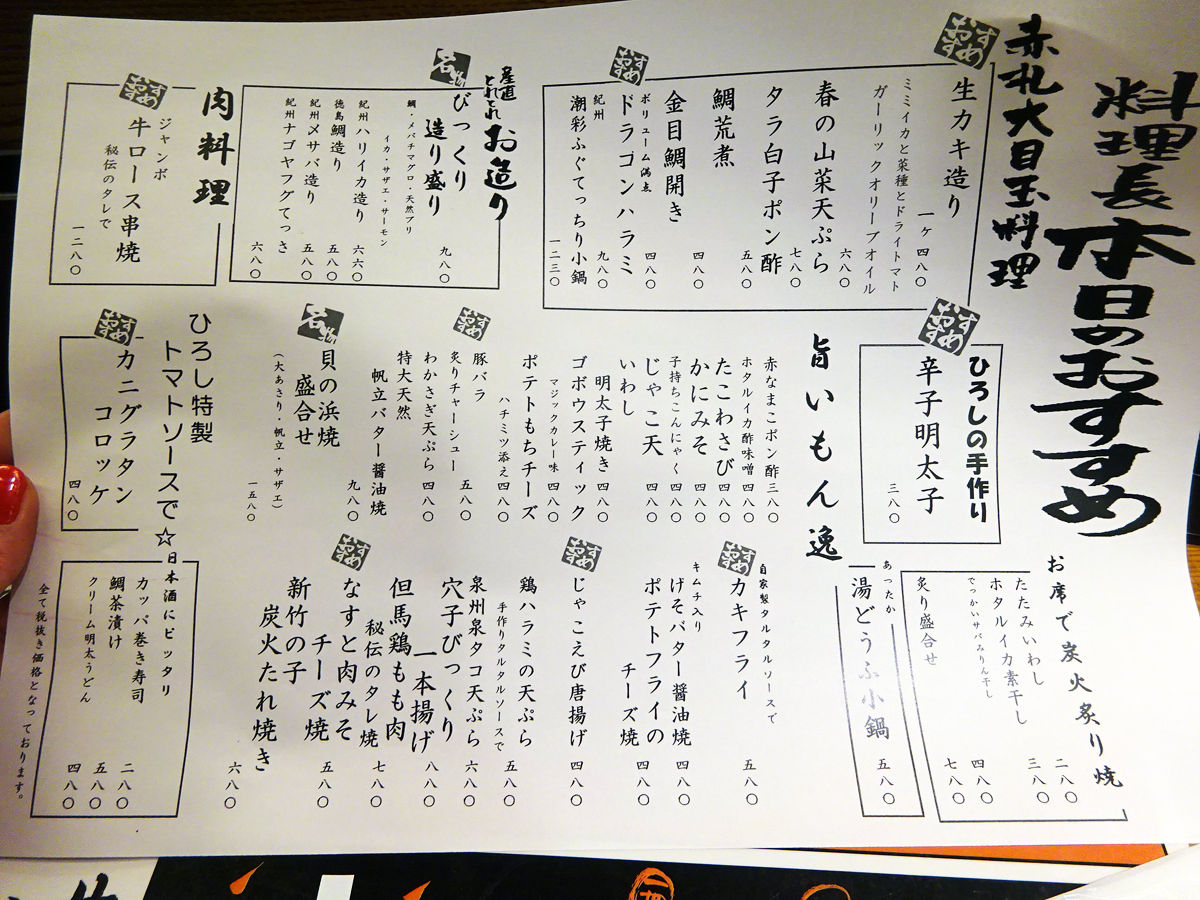 料理長本日のおすすめ
赤札大目玉料理
おすすめ
生カキ造り
一ヶ四八〇
ミミイカと菜種とドライトマト
ガーリックオリーブオイル
六八〇
春の山菜天ぷら
七八〇
タラ白子ポン酢
五八〇
鯛荒煮
四八〇
金目鯛開き
四八〇
ボリューム満点
おすすめ
ドラゴンハラミ
九八〇
紀州
潮彩ふぐてっちり小鍋
一二三〇
産直
とれとれ
お造り
名物
びっくり
造り盛り
九八〇
鯛・メバチマグロ・天然ブリ
イカ・サザエ・サーモン
紀州ハリイカ造り
六六〇
徳島鯛造り
五八〇
紀州〆サバ造り
五八〇
紀州ナゴヤフグてっさ
六八〇
肉料理
おすすめ
ジャンボ
牛ロース串焼
秘伝のタレで
一二八〇
おすすめ
ひろしの手作り
辛子明太子
三八〇
旨いもん逸
赤なまこポン酢
三八〇
ホタルイカ酢味噌
四八〇
たこわさび
四八〇
かにみそ
四八〇
子持ちこんにゃく
四八〇
じゃこ天
四八〇
いわし
明太子焼き
四八〇
ゴボウスティック
マジックカレー味
四八〇
ポテトもちチーズ
ハチミツ添え
四八〇
おすすめ
豚バラ
炙りチャーシュー
五八〇
わかさぎ天ぷら
四八〇
特大天然
帆立バター醤油焼
九八〇
名物
貝の浜焼
盛合せ
(大あさり・帆立・サザエ)
一五八〇
ひろし特製
トマトソースで☆
おすすめ
カニグラタン
コロッケ
四八〇
お席で炭火炙り焼
たたみいわし
二八〇
ホタルイカ素干し
三八〇
でっかいサバみりん干し
四八〇
炙り盛合せ
七八〇
あったか
湯どうふ小鍋
五八〇
自家製タルタルソースで
おすすめ
カキフライ
五八〇
キムチ入り
げそバター醤油焼
四八〇
ポテトフライの
チーズ焼
四八〇
おすすめ
じゃこえび唐揚げ
四八〇
鶏ハラミの天ぷら
手作りタルタルソースで
五八〇
泉州泉タコ天ぷら
六八〇
穴子びっくり
一本揚げ
八八〇
但馬鶏もも肉
秘伝のタレ焼
七八〇
おすすめ
なすと肉みそ
チーズ焼
五八〇
新竹の子
炭火たれ焼き
六八〇
日本酒にピッタリ
カッパ巻き寿司
二八〇
鯛茶漬け
五八〇
クリーム明太うどん
四八〇
全て税抜き価格となっております。